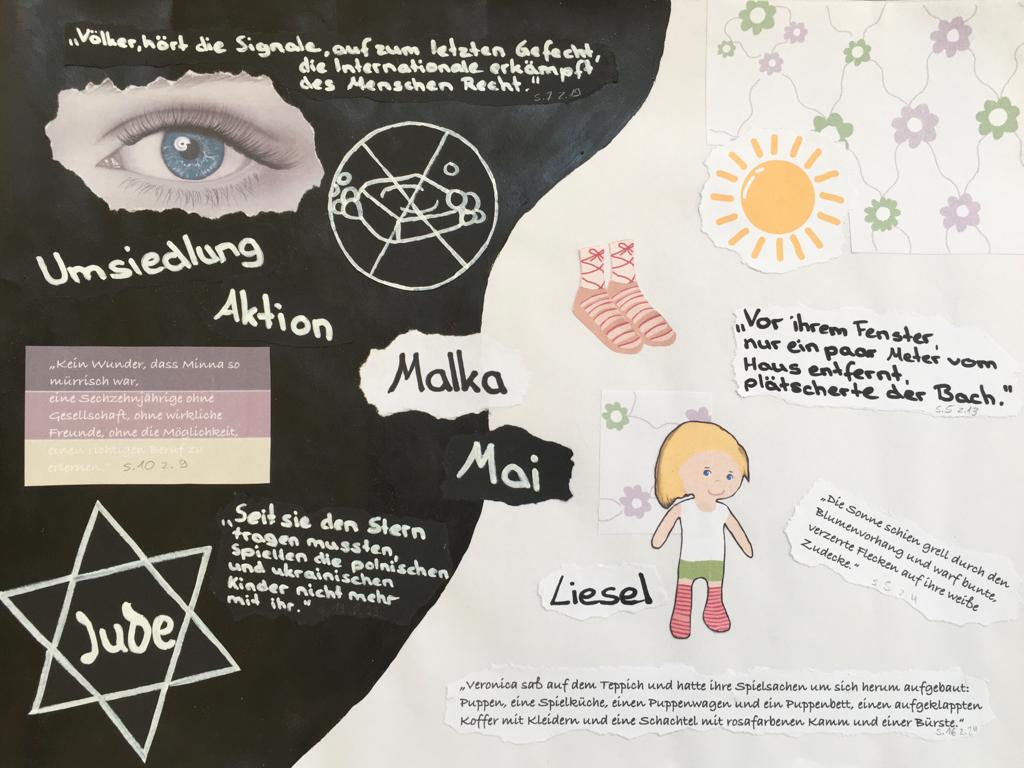 „Völker, hört die Signale, auf zum letzten Gefecht,
die Internationale erkämpft
des Menschen Recht."
S.7 Z.
Umsiedlung
Aktion
„Kein Wunder, dass Minna so
mürrisch war,
eine Sechzehnjährige ohne
Gesellschaft, ohne wirkliche
Freunde, ohne die Möglichkeit,
einen richtigen Beruf zu
erlernen." S.10 Z.9
„Seit sie den Stern
tragen mussten,
Spiellen die polnischen
und ukrainischen
Kinder nicht mehr
mit ihr."
Jude
Malka
Mai
„Vor ihrem Fenster,
nur ein paar Meter vom
Haus entfernt,
plätscherte der Bach."
S.5 Z.13
„Die Sonne schien grell durch den
Blumenvorhang und warf bunte,
verzerrte Flecken auf ihre weiße
Zudecke." S.5 Z.4
Liesel
„Veronica saß auf dem Teppich und hatte ihre Spielsachen um sich herum aufgebaut:
Puppen, eine Spielküche, einen Puppenwagen und ein Puppenbett, einen aufgeklappten
Koffer mit Kleidern und eine Schachtel mit rosafarbenen Kamm und einer Bürste."
S.16 Z.